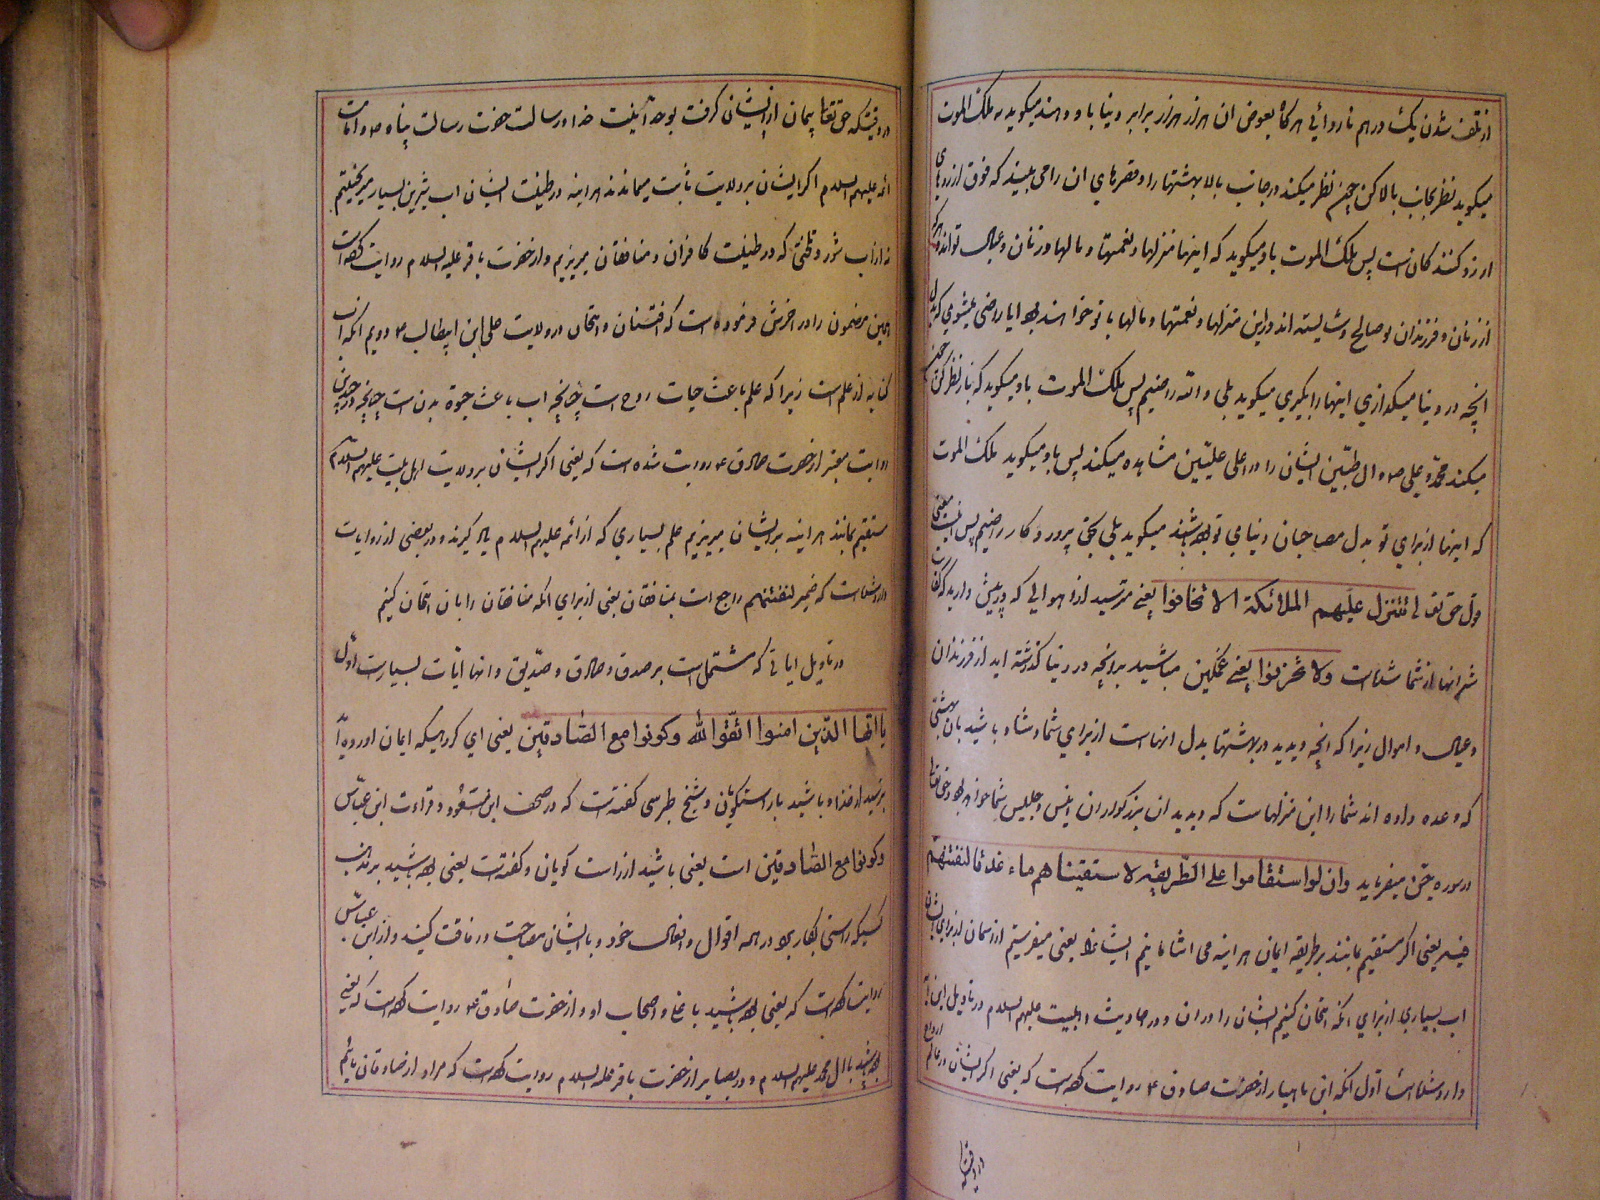 از تلف شدن یک درهم ناروائی هرگاه بعوض ان هزار هزار برابر دنیا باو دهند میکوید نه ملک الموت
میکوید نظر بجانب بالا کن چون نظر میکند در جانب بالا بهشتها را و قصرهای ان را می بیند که فوق ارزوهای
ارزو کنندکان است پس ملک الموت باو میکوید که اینها منزلها و نعمتها و مالها و زنان و عیال تواند و هرکه
از زنان و فرزندان تو صالح و شایسته اند در این منزلها و نعمتها و مالها با تو خواهند بود ایا راضی میشوی که بدل
انچه در دنیا میکذاری اینها را بکیری میکوید بلی و الله راضیم پس ملک الموت باو میکوید که باز نظر کن چون نظر
میکند محمد و علی ص و ال طیبین ایشان را در اعلی علیین مشاهده میکند پس باو میکوید ملک الموت
که اینها از برای تو بدل مصاحبان دنیای تو بوده باشند میکوید بلی بحق پروردکار راضیم پس اینست معنی
قول حق تعالی تتنزل علیهم الملائکة الا تخافوا یعنی مترسید از اهوالی که در پیش دارید که کفایت
شر انها از شما شده است ولا تحزنوا یعنی غمکین مباشید بر انچه در دنیا کذاشته اید از فرزندان
و عیال و اموال زیرا که انچه دیدید در بهشتها بدل انهاست از برای شما و شاد باشید بان بهشتی
که وعده داده اند شما را این منزلهاست که دیدید ان بزرکواران انیس و جلیس شما خواهند بود و حق تعالی
در سوره جن میفرماید وان لو استقاموا علی الطریقة لاسقیناهم ماء غدقا لنفتنهم
فیه یعنی اکر مستقیم بمانند بر طریقه ایمان هر اینه می اشامانیم ایشانرا یعنی میفرستیم از اسمان از برای ایشان
اب بسیاری از برای انکه امتحان کنیم ایشان را در ان و در احادیث اهلبیت علیهم السلام در تاویل این
وارد شده است اول انکه ابن ماهیار از حضرت صادق ع روایت کرده است که یعنی اکر ایشان در عالم ارواح
در وقتیکه
در وقتیکه حق تعالی پیمان از ایشان کرفت بوحدانیت خدا و رسالت حضرت رسالت پناه ص و امامت
ائمه علیهم السلام اکر ایشان بر ولایت ثابت میماندند هر اینه در طینت ایشان اب شیرین بسیار میریختیم
نه از اب شور و تلخی که در طینت کافران و منافقان میریزیم و از حضرت باقر علیه السلام روایت کرده است
همین مضمون را و در اخرش فرموده است که افتتنان و امتحان در ولایت علی ابن ابیطالب ع دویم انکه اب
کنایه از علم است زیرا که علم باعث حیات روح است چنانچه اب باعث حیوة بدن است چنانچه در چندین
روایت معتبر از حضرت صادق ع روایت شده است که یعنی اکر ایشان بر ولایت اهل بیت علیهم السلام
مستقیم بمانند هر اینه بر ایشان میریزیم علم بسیاری که از ائمه علیهم السلام یاد کیرند و در بعضی از روایات
وارد شده است که ضمیر لنفتنهم راجع است بمنافقان یعنی از برای انکه منافقان را بان امتحان کنیم
در تاویل ایاتی که مشتمل است بر صدق و صادق و صدیق و انها ایات بسیار است اول
یا ایها الذین امنوا اتقوا الله وکونوا مع الصادقین یعنی ای کروهیکه ایمان اورده اید
بترسید از خدا و باشید با راستکویان و شیخ طبرسی کفته است که در مصحف ابن مسعود و قراءت ابن عباس
وکونوا مع الصادقین است یعنی باشید از راست کویان و کفته است یعنی بوده باشید بر مذهب
کسیکه راستی بکار برد در همه اقوال و افعال خود و با ایشان مصاحبت و رفاقت کنید و از ابن عباس
روایت کرده است که یعنی بوده باشید با علی و اصحاب او و از حضرت صادق ع روایت کرده است که یعنی
بوده باشید با ال محمد علیهم السلام و در بصایر از حضرت باقر علیه السلام روایت کرده است که مراد از صادقان مائیم